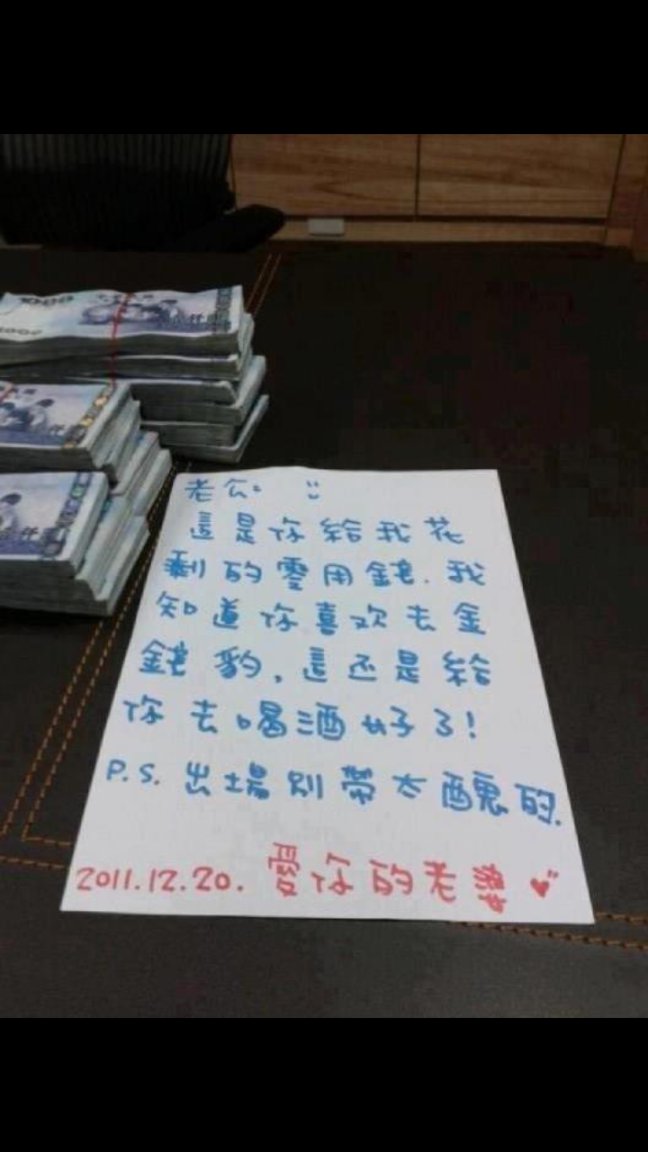 1000
1000
仟
仟
老公:
這是你給我花
剩的零用錢.我
知道你喜欢去金
錢豹,這还是給
你去喝酒好了!
P.S.出場別帶太醜的.
2011.12.20. 愛你的老婆